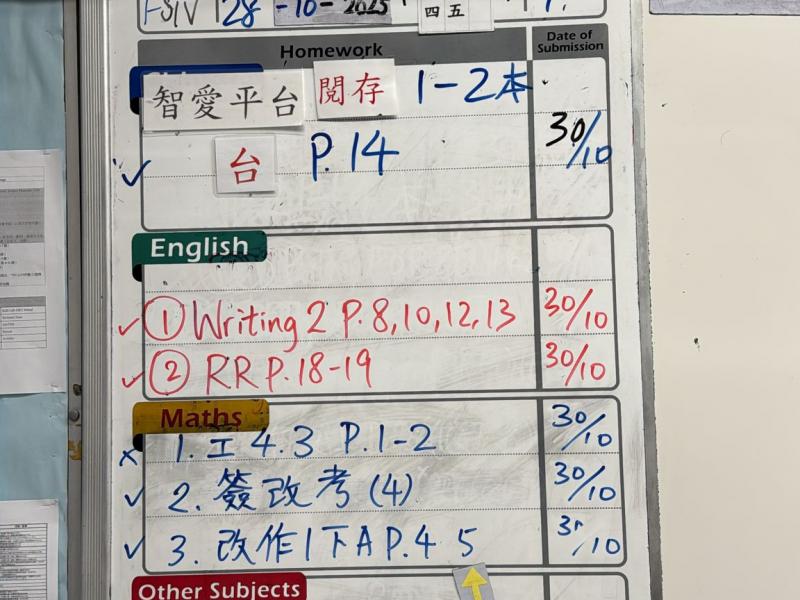 28 -10- 2025
四 五
Homework
Date of Submission
智愛平台 閱存 1-2本
台 P.14 30/10
English
① Writing 2 P.8,10,12,13 30/10
② RR P.18-19 30/10
Maths
1. 工 4.3 P.1-2 30/10
2. 簽改考(4) 30/10
3. 改作1下A P.4 5 /10
Other Subjects